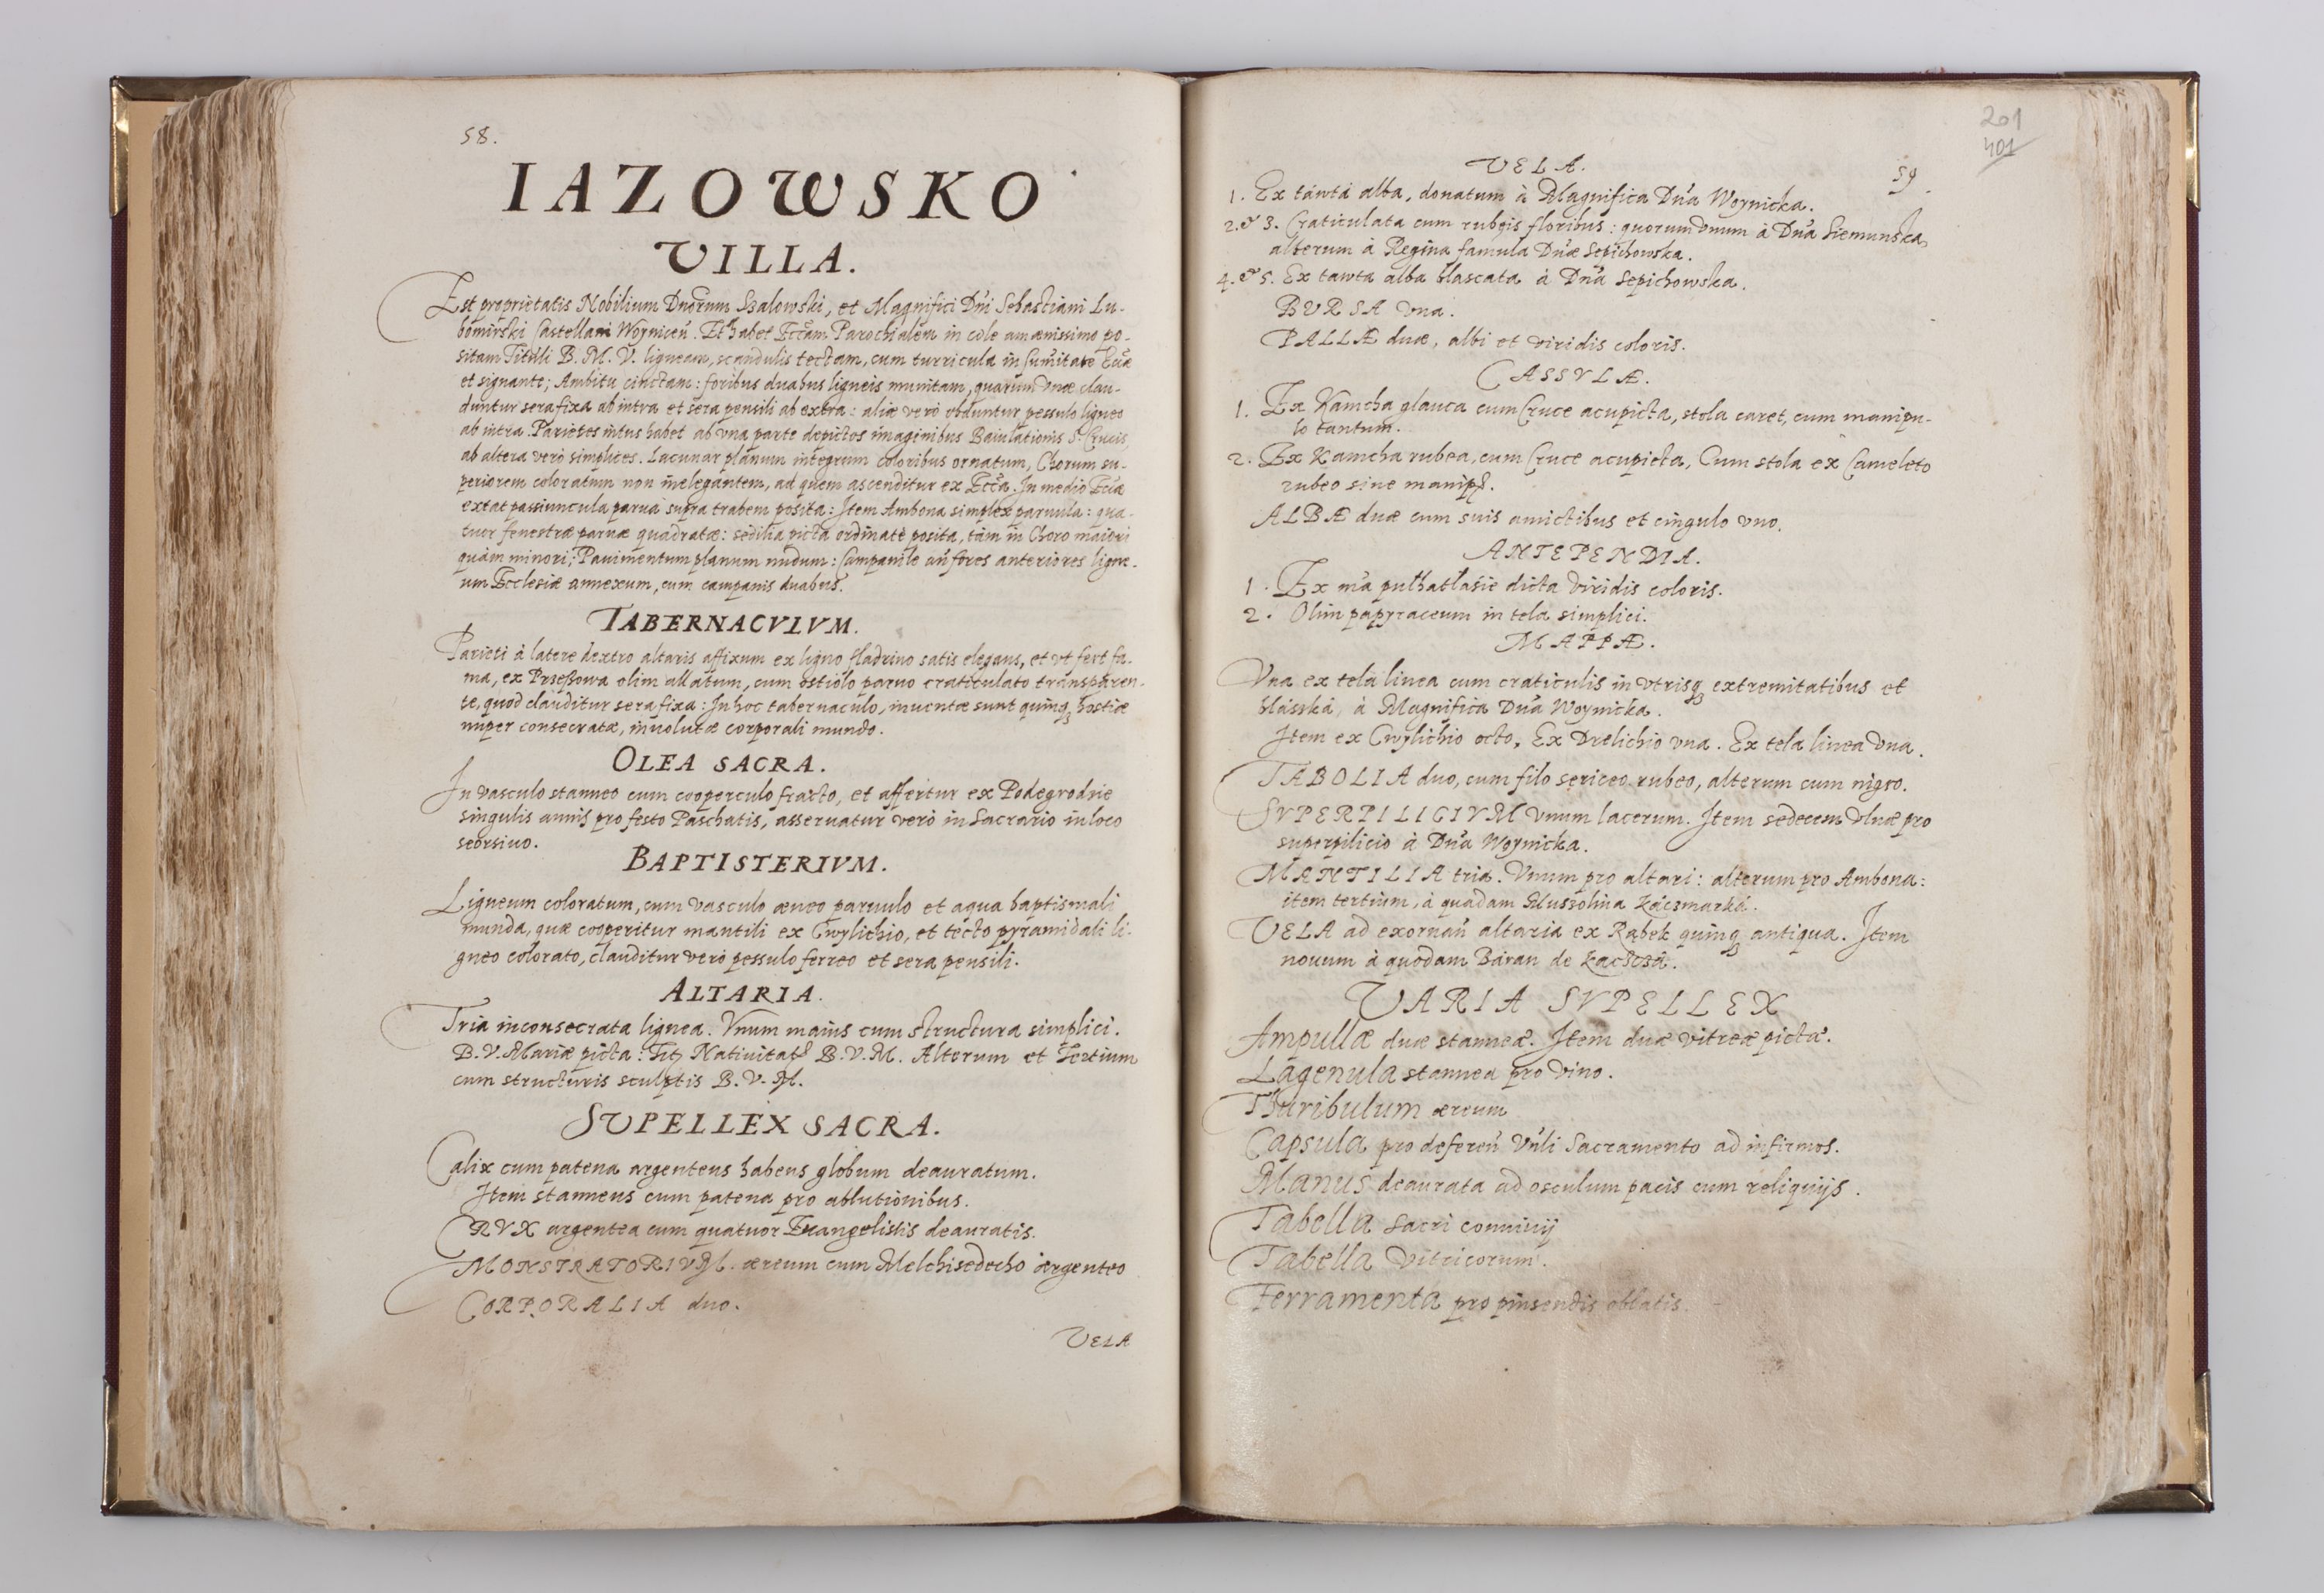 58.
IAZOWSKO
VILLA.
Est proprietatis Nobilium Dnorum Szalowski, et Magnifici Dni Sebastiani Lu-
bomirski Castellani Woynicen. Et habet Ecctam Parochialem in cole amænissimo po-
sitam Tituli B. M. V. ligneam, scandulis tectam, cum turricula in sumitate Ecctæ
et signante; Ambitu cinctam: foribus duabus ligneis munitam, quarum vnæ clau-
duntur sera fixa ab intra et sera pensili ab extra: aliæ verò obduntur pessulo ligneo
ab intra. Parietes intus habet ab vna parte depictos imaginibus Baiulationis S. Crucis,
ab altera verò simplices. Lacunar planum integrum coloribus ornatum, Chorum su-
periorem coloratum non inelegantem, ad quem ascenditur ex Eccta. In medio Ecctæ
extat passiuncula parua supra trabem posita: Item Ambona simplex paruula: qua-
tuor fenestræ paruæ quadratæ: sedilia picta ordinatè posita, tàm in Choro maiori
quàm minori; Pauimentum planum nudum: Campanile an fores anteriores ligne-
um Ecclesiæ annexum, cum campanis duabus.
TABERNACVLVM.
Parieti à latere dextro altaris affixum ex ligno fladrino satis elegans, et vt fert fa-
ma, ex Przeßowa olim allatum, cum ostiolo paruo craticulato transparen-
te, quod clauditur sera fixa: In hoc tabernaculo, inuentæ sunt quinq3 hostiæ
nuper consecratæ, inuolutæ corporali mundo.
OLEA SACRA.
In vasculo stanneo cum cooperculo fracto, et affertur ex Podegrodzie
singulis annis pro festo Paschatis, asseruatur verò in Sacrario in loco
seorsiuo.
BAPTISTERIVM.
Ligneum coloratum, cum vasculo æneo paruulo et aqua baptismali
munda, quæ cooperitur mantili ex Cwylichio, et tecto pyramidali li-
gneo colorato, clauditur verò pessulo ferreo et sera pensili.
ALTARIA.
Tria inconsecrata lignea. Vnum maius cum structura simplici.
B. V. Mariæ picta: Tit Natiuitat B. V. M. Alterum et Tertium
cum structuris sculptis B. V. M.
SVPELLEX SACRA.
Calix cum patena argenteus habens globum deauratum.
Item stanneus cum patena pro ablutionibus.
CRVX argentea cum quatuor Euangelistis deauratis.
MONSTRATORIVM. æreum cum Melchisedecho argenteo
CORPORALIA duo.
VELA
201
401
59
VELA.
1. Ex tawta alba, donatum à Magnifica Dna Woynicka.
2. & 3. Craticulata cum rubeis floribus: quorum vnum à Dna Siemunska
alterum à Regina famula Dnæ Sepichowska.
4. & 5. Ex tawta alba blascata à Dna Sepichowska.
BVRSA vna.
PALLÆ duæ, albi et viridis coloris.
CASSVLÆ.
1. Ex Kamcha glauca cum Cruce acupicta, stola caret, cum manipu-
lo tantum.
2. Ex Kamcha rubea, cum Cruce acupicta, Cum stola ex Cameleto
rubeo sine manip.
ALBÆ duæ cum suis amictibus et cingulo vno.
ANTEPENDIA.
1. Ex ma pulhatlasie dicta viridis coloris.
2. Olim papyraceum in tela simplici.
MAPPÆ.
Vna ex tela linea cum craticulis in vtrisq3 extremitatibus et
blasská, à Magnifica Dna Woynicka.
Item ex Cwylichio octo, Ex Drelichio vna. Ex tela linea vna.
TABOLIA duo, cum filo sericeo rubeo, alterum cum nigro.
SVPERPILICIVM vnum lacerum. Item sedecem vlnæ pro
superpilicio à Dna Woynicka.
MANTILIA tria. Vnum pro altari: alterum pro Ambona:
item tertium, à quadam Mussolina Kaczmarka.
VELA ad exornan altaria ex Rąbek quinq3 antiqua. Item
nouum à quodam Baran de
VARIA SVPELLEX
Ampullæ duæ stanneæ. Item duæ vitreæ pictæ.
Lagenula stannea pro vino.
Thuribulum æreum
Capsula pro deferen Vnli Sacramento ad infirmos.
Manus deaurata ad osculum pacis cum reliquijs.
Tabella Sacri conuiuij
Tabella vitricorum.
Ferramenta pro pinsendis oblatis.